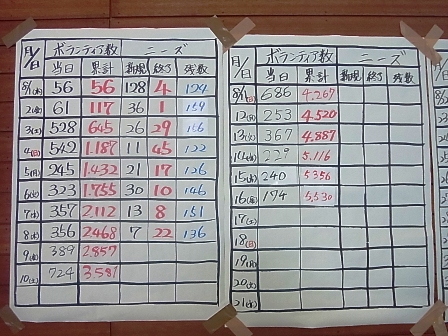 月/日 ボランティア数 ニーズ
当日 累計 新規 終了 残数
8/1(木) 56 56 128 4 124
2(金) 61 117 36 1 159
3(土) 528 645 26 29 156
4(日) 542 1.187 11 45 122
5(月) 245 1.432 21 17 126
6(火) 323 1.755 30 10 146
7(水) 357 2.112 13 8 151
8(木) 356 2468 7 22 136
9(金) 389 2.857
10(土) 724 3.581
月/日 ボランティア数 ニーズ
当日 累計 新規 終了 残数
8/11(日) 686 4.267
12(月) 253 4.520
13(火) 367 4.887
14(水) 229 5.116
15(木) 240 5356
16(金) 174 5,530
17(土)
18(日)
19(月)
20(火)
21(水)